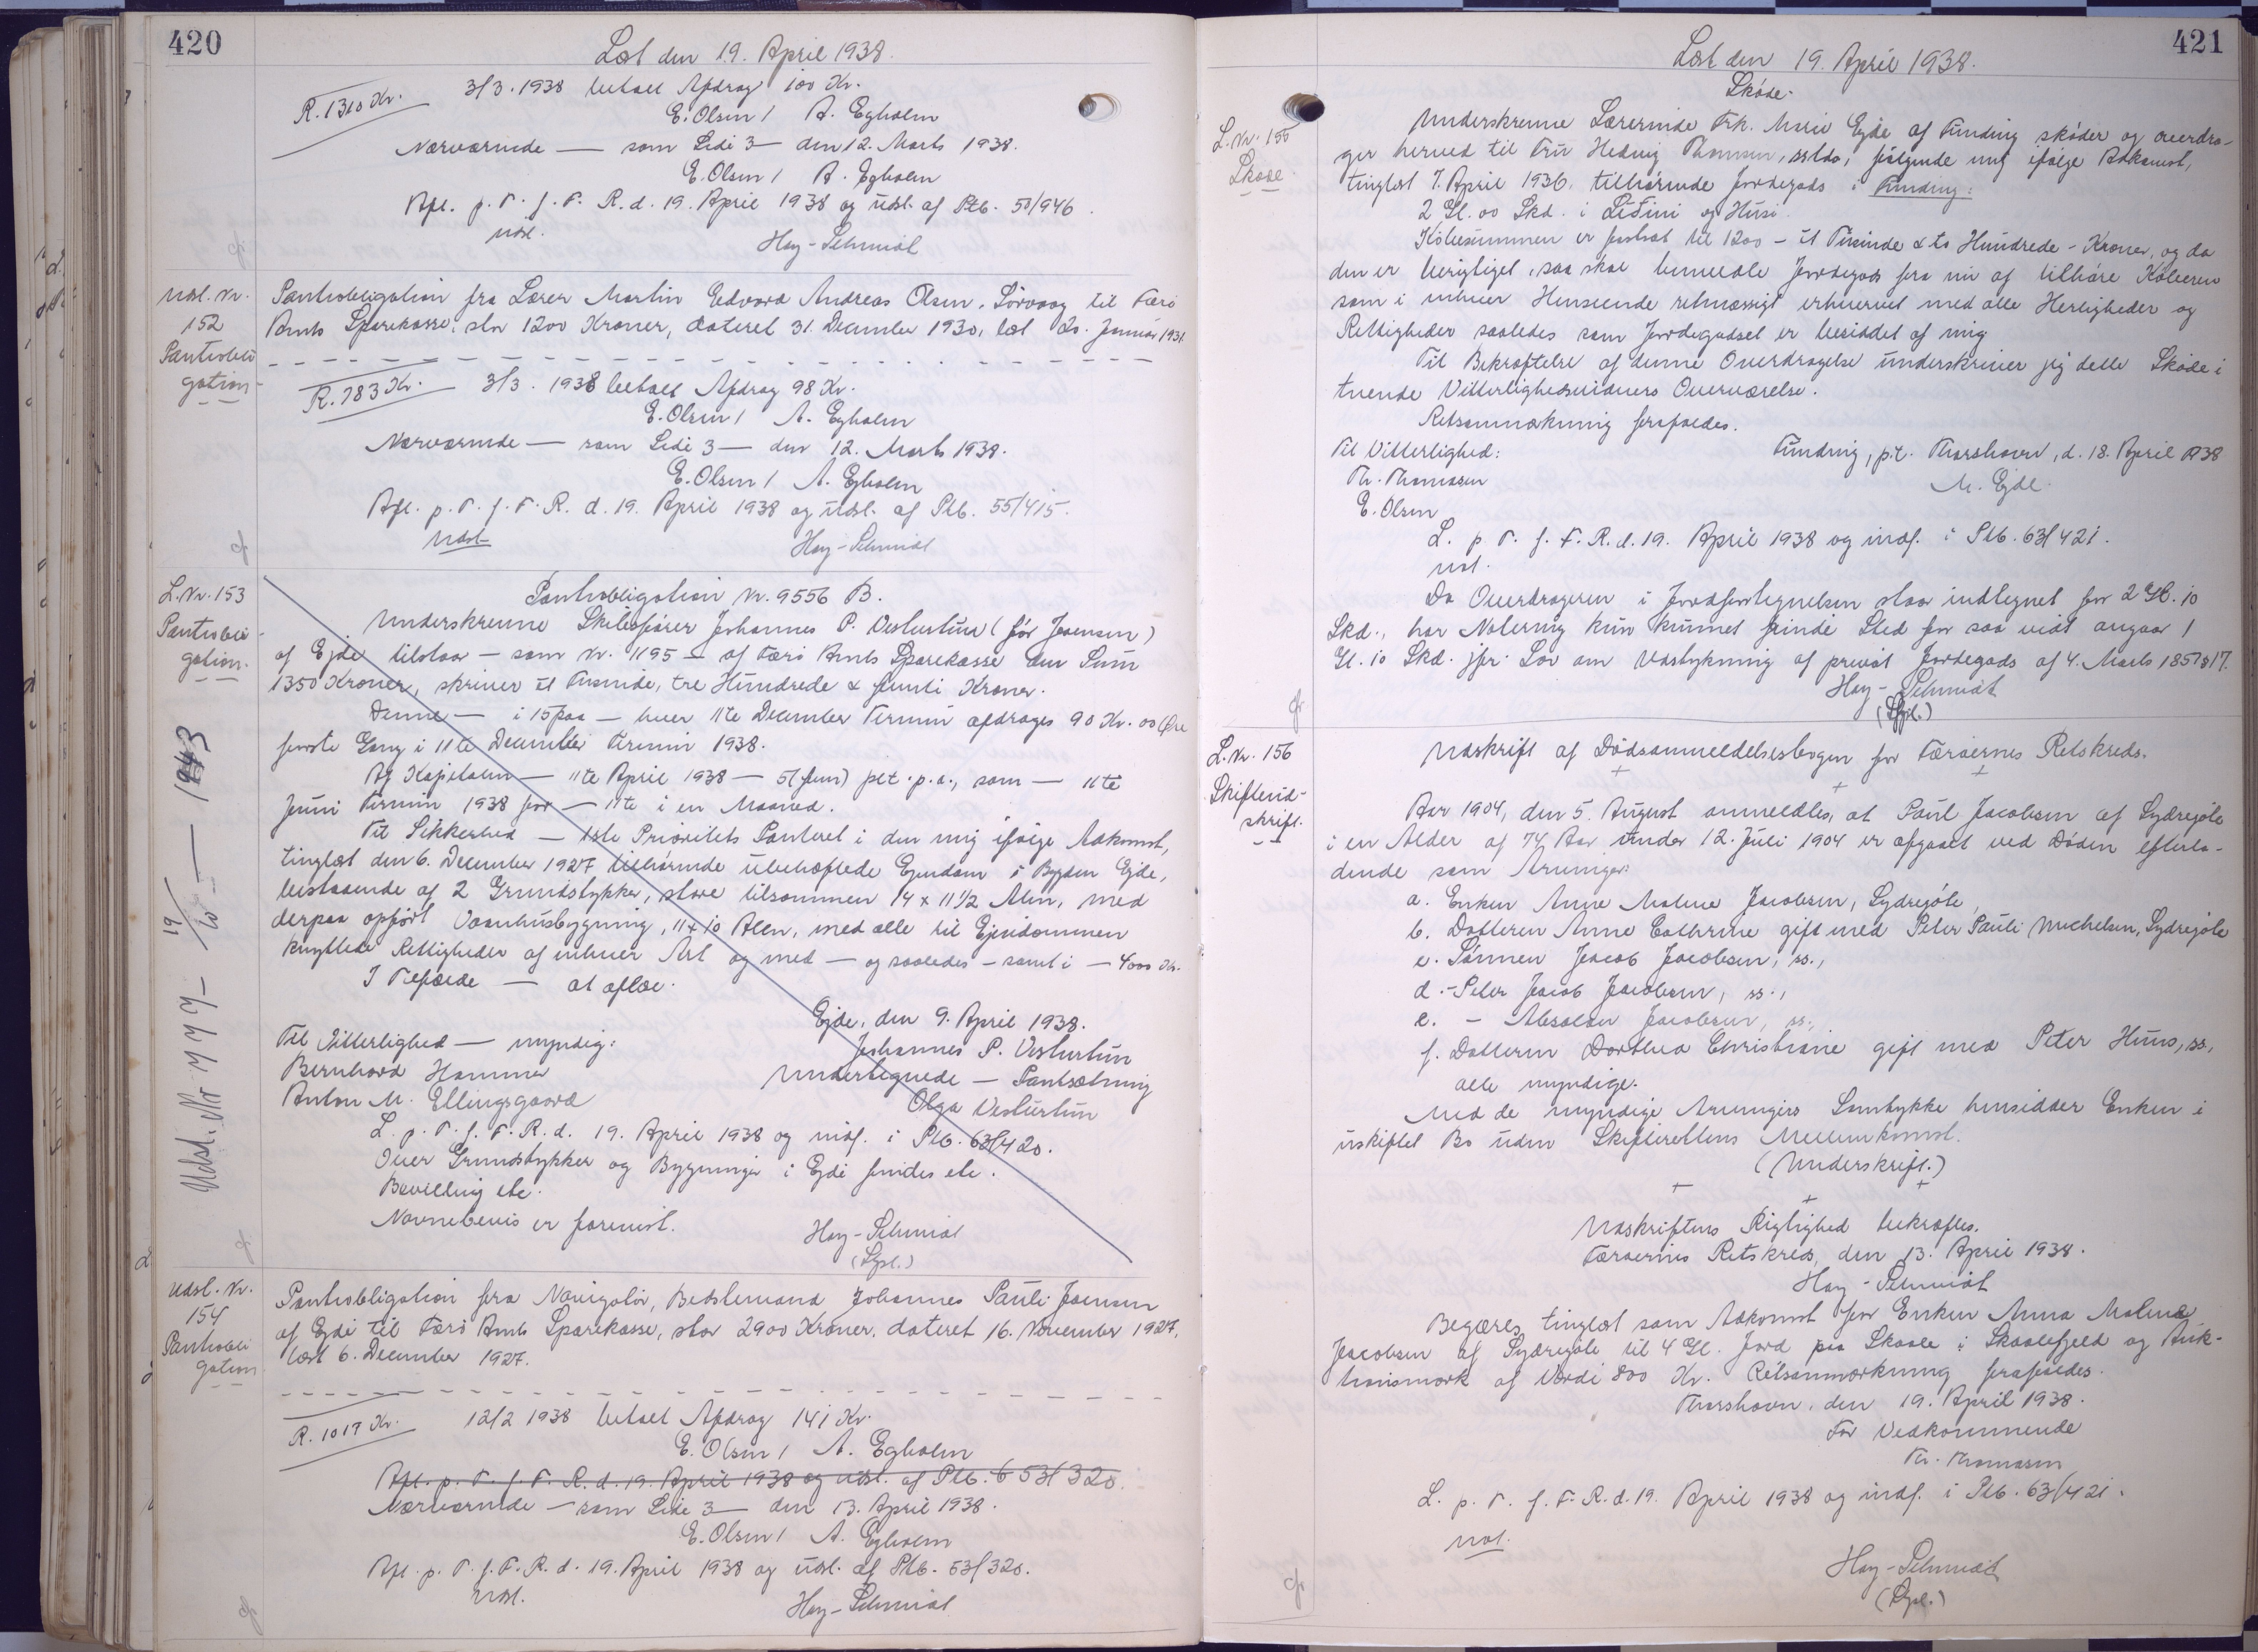 420
Læst den 19. April 1938.
R. 1310 Kr.
3/3. 1938 betalt Afdrag 100 Kr.
E. Olsen / A. Egholm
Nærværende — som Side 3 — den 12. Marts 1938.
E. Olsen / A. Egholm
Afl. p. T. f. F. R. d. 19. April 1938 og udsl. af Ptb. 50/946.
udsl.
Hay-Schmidt
Udsl. Nr.
152
Pantobli
gation
Pantobligation fra Lærer Martin Edvard Andreas Olsen, Sørvaag til Færø
Amts Sparekasse, stor 1200 Kroner, dateret 31. December 1930, læst 20. Januar 1931.
R. 783 Kr.
3/3. 1938 betalt Afdrag 98 Kr.
E. Olsen / A. Egholm
Nærværende — som Side 3 — den 12. Marts 1938.
E. Olsen / A. Egholm
Afl. p. T. f. F. R. d. 19. April 1938 og udsl. af Ptb. 55/415.
Udsl.
Hay-Schmidt
L. Nr. 153
Pantobli-
gation.
Udsl. Nr 777 - 19/10 - 1943
Pantobligation Nr. 9556 B.
Underskrevne Skibsfører Johannes P. Vesturtún (før Joensen)
af Ejde tilstaar — som Nr. 1195 — af Færø Amts Sparekasse den Sum
1350 Kroner, skriver et Tusinde, tre Hundrede & femti Kroner.
Denne — i 15 paa — hver 11te December Termin afdrages 90 Kr. 00 Øre
første Gang i 11te December Termin 1938.
Af Kapitalen — 11te April 1938 — 5 (fem) pct. p.a., som — 11te
Juni Termin 1938 for — 11te i en Maaned.
Til Sikkerhed — 1ste Prioritets Panteret i den mig ifølge Adkomst,
tinglæst den 6. December 1927 tilhørende ubehæftede Ejendom i Bygden Ejde,
bestaaende af 2 Grundstykker, store tilsammen 14 x 11 1/2 Alen, med
derpaa opført Vaanhusbygning, 11 x 10 Alen, med alle til Ejendommen
knyttede Rettigheder af enhver Art og med — og saaledes — samt i — 4000 Kr.
I Tilfælde — at aflæ.
Ejde, den 9. April 1938.
Til Vitterlighed — myndig:
Johannes P. Vesturtún
Bernhard Hammer
Undertegnede — Pantsætning
Anton M. Ellingsgaard
Olga Vesturtún
L. p. T. f. F. R. d. 19. April 1938 og indf. i Ptb. 63/420.
Over Grundstykker og Bygninger i Ejde findes etc.
Bevilling etc.
Navnebevis er forevist.
Hay-Schmidt
(Spl.)
Udsl. Nr.
154
Pantobli
gation
Pantobligation fra Navigatør, Bedstemand Johannes Pauli Joensen
af Ejde til Færø Amts Sparekasse, stor 2900 Kroner, dateret 16. November 1927,
læst 6. December 1927.
R. 1019 Kr.
12/2 1938 betalt Afdrag 141 Kr.
E. Olsen / A. Egholm
Afl. p. T. f. F. R. d. 19. April 1938 og udsl. af Ptb. 6 53/320.
Nærværende — som Side 3 — den 13. April 1938.
E. Olsen / A. Egholm
Afl. p. T. f. F. R. d. 19. April 1938 og udsl. af Ptb. 53/320.
Udsl.
Hay-Schmidt
421
Læst den 19. April 1938.
L. Nr. 155
Skøde.
Skøde.
Underskrevne Lærerinde Frk. Marie Ejde af Funding skøder og overdra-
ger herved til Fru Hedvig Thomsen, sstds, følgende mig ifølge Adkomst,
tinglæst 7. April 1936, tilhørende Jordegods i Funding:
2 Gl. 00 Skd. i Lidini og Húsi.
Købesummen er fastsat til 1200 - et Tusinde & to Hundrede - Kroner, og da
den er berigtiget, saa skal bemeldte Jordegods fra nu af tilhøre Køberen
som i enhver Henseende retmæssigt erhvervet med alle Herligheder og
Rettigheder saaledes som Jordegodset er besiddet af mig
Til Bekræftelse af denne Overdragelse underskriver jeg dette Skøde i
tvende Vitterlighedsvidners Overværelse.
Retsanmærkning frafaldes.
Til Vitterlighed:
Funding, p.t. Thorshavn, d. 18. April 1938
Th. Thomasen
M. Ejde.
E. Olsen
L. p. T. f. F. R. d. 19. April 1938 og indf. i Ptb. 63/421.
Udsl.
Da Overdrageren i Jordfortegnelsen staar indtegnet for 2 Gl. 10
Skd., har Notering kun kunnet finde Sted for saa vidt angaar 1
Gl. 10 Skd. jfr. Lov om Udstykning af privat Jordegods af 4. Marts 1857 § 17.
Hay-Schmidt
(Spl.)
L. Nr. 156
Skifteud-
skrift.
Udskrift af Dødsanmeldelsesbogen for Færøernes Retskreds.
Aar 1904, den 5. August anmeldtes, at Paul Jacobsen af Sydregøte
i en Alder af 74 Aar under 12. Juli 1904 er afgaaet ved Døden efterla-
dende som Arvinger:
a. Enken Anne Malene Jacobsen, Sydregøte,
b. Datteren Anne Cathrine gift med Peter Pauli Michelsen, Sydregøte
c. Sønnen Jacob Jacobsen, ss.,
d. - Peter Jacob Jacobsen, ss.,
e. - Absalon Jacobsen, ss.,
f. Datteren Dorthea Christiane gift med Peter Huus, ss.,
alle myndige.
Med de myndige Arvingers Samtykke hensidder Enken i
uskiftet Bo uden Skifterettens Mellemkomst.
(Underskrift.)
Udskriftens Rigtighed bekræftes.
Færøernes Retskreds, den 13. April 1938.
Hay-Schmidt
Begæres tinglæst som Adkomst for Enken Anna Malene
Jacobsen af Sydregøte til 4 Gl. Jord paa Skaale i Skaalefjeld og Auk-
tionsmark af Værdi 800 Kr. Retsanmærkning frafaldes.
Thorshavn, den 19. April 1938.
For Vedkommende
Th. Thomasen
L. p. T. f. F. R. d. 19. April 1938 og indf. i Ptb. 63/421.
Udsl.
Hay-Schmidt
(Spl.)